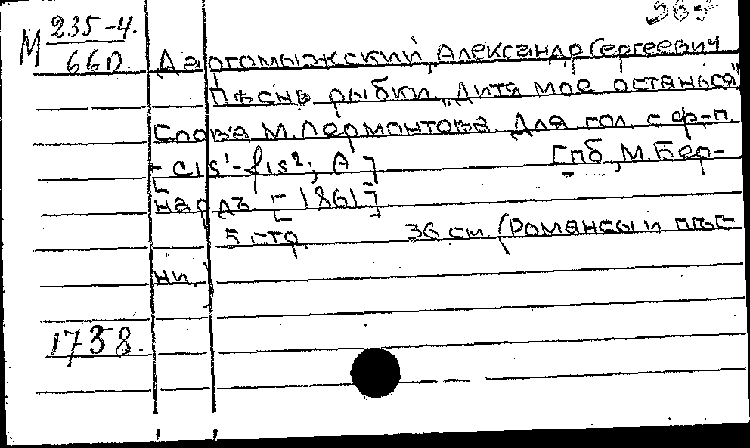 М 235-4.
660 Даргомыжский, Александр Сергеевич
Пѣснь рыбки "Дитя мое останься"
Слова М. Лермонтова. Для гол. с ф-п.
[cis¹-fis²; A] Спб, М. Бер-
нардъ [1861]
5 стр. 36 см. (Романсы и пѣс-
ни.)
1738.